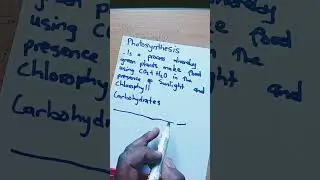 Photosynthesis
- Is a process whereby
green plants make food
using CO₂+ H₂O in the
presence of Sunlight and
Chlorophyll
Carbohydrates